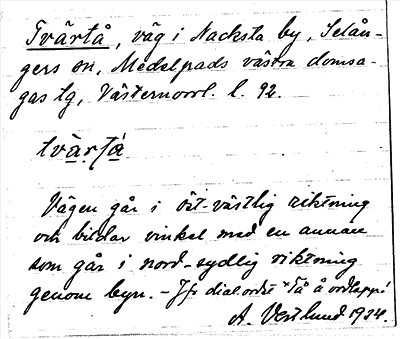 Tvärtå, väg i Nacksta by, Selån-
gers sn, Medelpads västra domsa-
gas tg, Västernorrl. l. 92.
tvärtå
Vägen går i öst-västlig riktning
och bildar vinkel med en annan
som går i nord-sydlig riktning
genom byn. - Jfr dial. ordet *Tå å
A. Vestlund 1924.